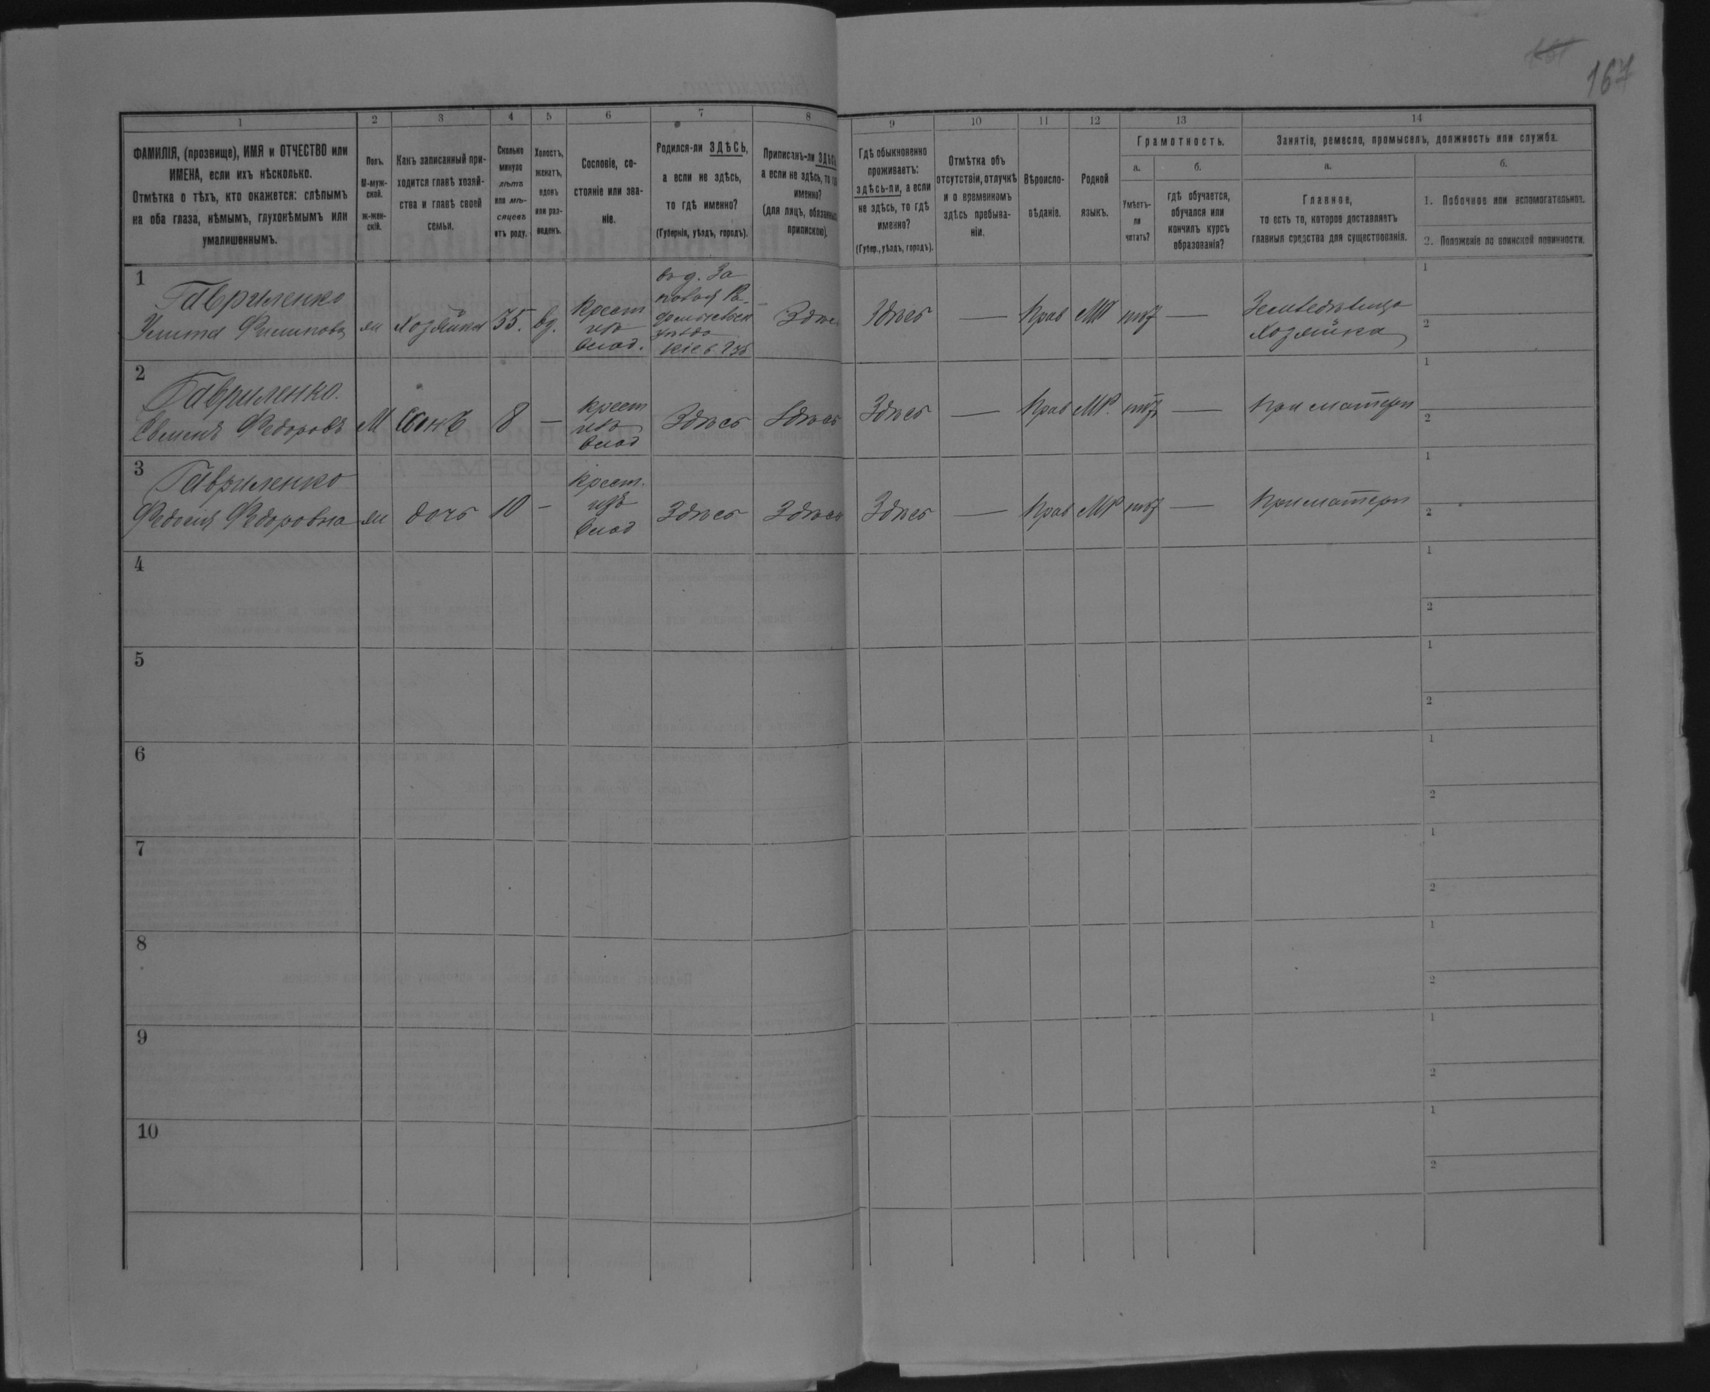 167
1 2 3 4 5 6 7 8 9 10 11 12 13 14
ФАМИЛІЯ, (прозвище), ИМЯ и ОТЧЕСТВО или
ИМЕНА, если ихъ нѣсколько.
Отмѣтка о тѣхъ, кто окажется: слѣпымъ
на оба глаза, нѣмымъ, глухонѣмымъ или
умалишеннымъ.
Полъ.
М-муж-
ской.
ж-жен-
скій.
Какъ записанный при-
ходится главѣ хозяй-
ства и главѣ своей
семьи.
Сколько
минуло
лѣтъ
или мѣ-
сяцевъ
отъ роду.
Холостъ,
женатъ,
вдовъ
или раз-
веденъ.
Сословіе, со-
стояніе или зва-
ніе.
Родился-ли ЗДѢСЬ,
а если не здѣсь,
то гдѣ именно?
(Губернія, уѣздъ, городъ).
Приписанъ-ли ЗДѢСЬ,
а если не здѣсь, то гдѣ
именно?
(для лицъ, обязанныхъ
припискою).
Гдѣ обыкновенно
проживаетъ:
здѣсь-ли, а если
не здѣсь, то гдѣ
именно?
(Губер., уѣздъ, городъ).
Отмѣтка объ
отсутствіи, отлучкѣ
и о временномъ
здѣсь пребыва-
ніи.
Вѣроиспо-
вѣданіе.
Родной
языкъ.
Грамотность.
а.
Умѣетъ-
ли
читать?
б.
гдѣ обучается,
обучался или
кончилъ курсъ
образованія?
Занятіе, ремесло, промыселъ, должность или служба.
а.
Главное,
то есть то, которое доставляетъ
главныя средства для существованія.
б.
1. Побочное или вспомогательное.
2. Положеніе по воинской повинности.
1
Гавриленко
Филипова
ж
Хозяйка
35.
вд.
Крест
изъ
влад.
Здѣсь
Здѣсь
—
Прав
МР
нѣт
—
Земледѣлица
Хозяйка
1
2
2
Гавриленко.
Семенъ Федоровъ
М
Сынъ
8
—
крест
изъ
влад
Здѣсь
Здѣсь
Здѣсь
—
Прав
МР.
нѣт
—
При матери
1
2
3
Гавриленко
Федосія Федоровна
ж
дочь
10
—
крест.
изъ
влад
Здѣсь
Здѣсь
Здѣсь
—
Прав
МР
нѣт
—
При матери
1
2
4
1
2
5
1
2
6
1
2
7
1
2
8
1
2
9
1
2
10
1
2